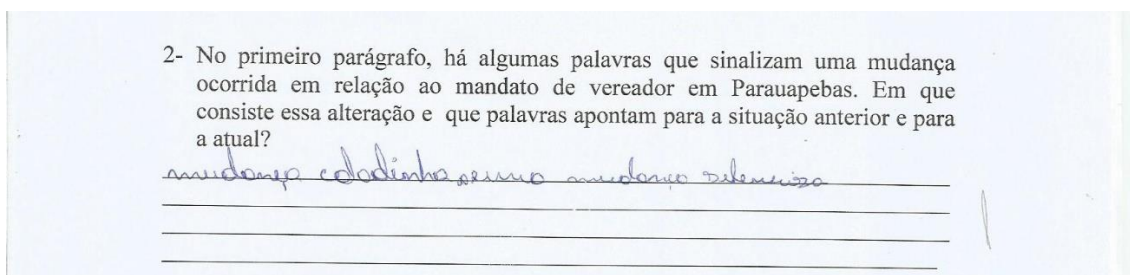 2- No primeiro parágrafo, há algumas palavras que sinalizam uma mudança
ocorrida em relação ao mandato de vereador em Parauapebas. Em que
consiste essa alteração e que palavras apontam para a situação anterior e para
a atual?
mudança caladinha mudança silenciosa